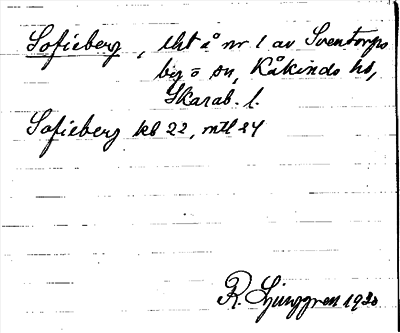 Sofieberg, lht å nr 1 av Sventorps
by o sn, Kåkinds hd,
Skarab. l.
Sofieberg kb 22, mtl 24
R. Ljunggren 1920